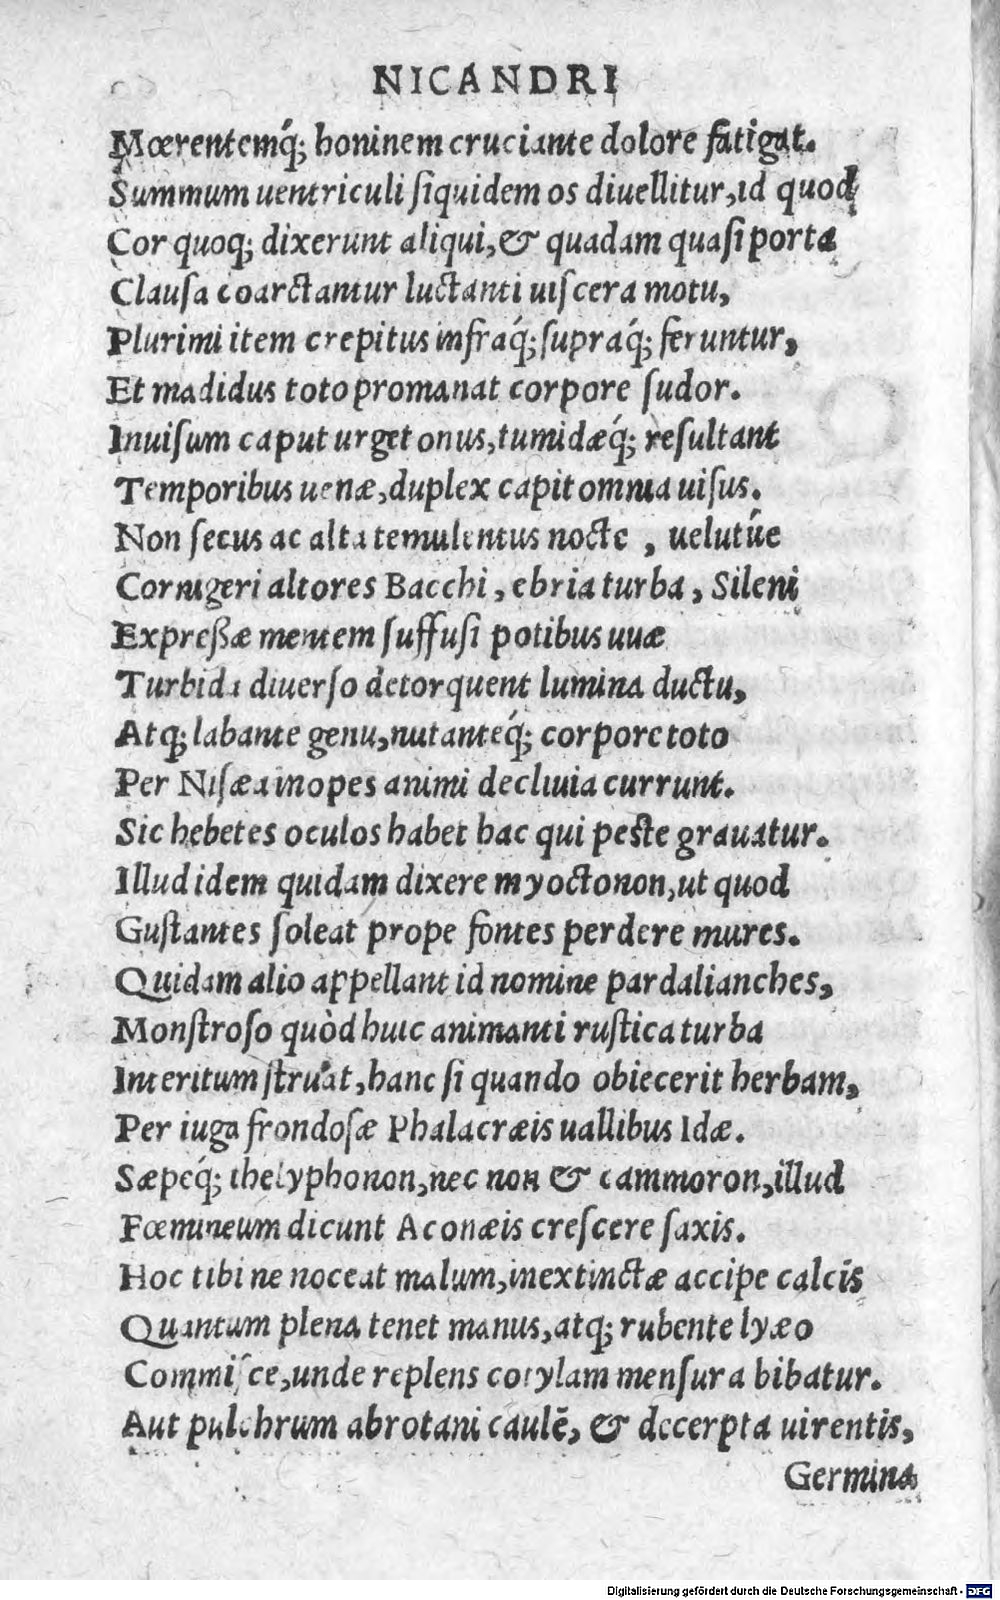 NICANDRI
Mœrentemq́; hominem cruciante dolore fatigat.
Summum uentriculi ſiquidem os diuellitur, id quod
Cor quoq; dixerunt aliqui, & quadam quaſi porta
Clauſa coarctantur luctanti uiſcera motu,
Plurimi item crepitus infraq́; ſupraq́; feruntur,
Et madidus toto promanat corpore ſudor.
Inuiſum caput urget onus, tumidæq́; reſultant
Temporibus uenæ, duplex capit omnia uiſus.
Non ſecus ac alta temulentus nocte , uelut úe
Cornigeri altores Bacchi, ebria turba, Sileni
Expreßæ mentem ſuffuſi potibus uuæ
Turbida diuerſo detorquent lumina ductu,
Atq; labante genu, nutanteq́; corpore toto
Per Niſæa inopes animi decliuia currunt.
Sic hebetes oculos habet hac qui peſte grauatur.
Illud idem quidam dixere myoctonon, ut quod
Guſtantes ſoleat prope fontes perdere mures.
Quidam alio appellant id nomine pardalianches,
Monſtroſo quòd huic animanti ruſtica turba
Interitum ſtruat, hanc ſi quando obiecerit herbam,
Per iuga frondoſæ Phalacræis uallibus Idæ.
Sæpeq́; thelyphonon, nec non & cammoron, illud
Fœmineum dicunt Aconæis creſcere ſaxis.
Hoc tibi ne noceat malum, inextinctæ accipe calcis
Quantum plena tenet manus, atq; rubente lyæo
Commiſce, unde replens cotylam menſura bibatur.
Aut pulchrum abrotani caulē, & decerpta uirentis,
Germina
Digitalisierung gefördert durch die Deutsche Forschungsgemeinschaft - DFG